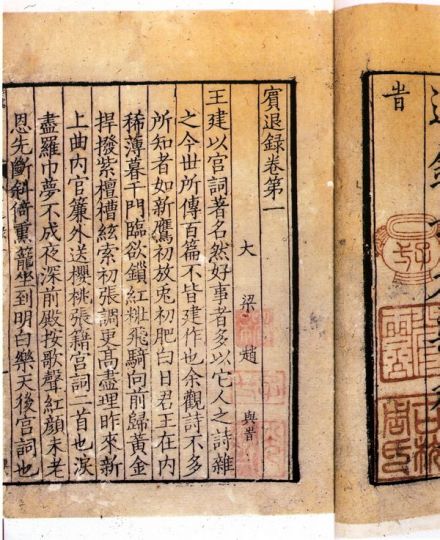 旹
賓退録卷第一
大梁趙與旹
王建以宫詞著名然好事者多以它人之詩雜
之今世所傳百篇不皆建作也余觀詩不多
所知者如新鷹初放兎初肥白日君王在内
稀薄暮千門臨欲鎖紅粧飛騎向前歸黄金
捍撥紫檀槽絃索初張調更髙盡理昨來新
上曲内官簾外送櫻桃張籍宫詞二首也淚
盡羅巾夢不成夜深前殿按歌聲紅顔未老
恩先斷斜倚熏籠坐到明白樂天後宫詞也